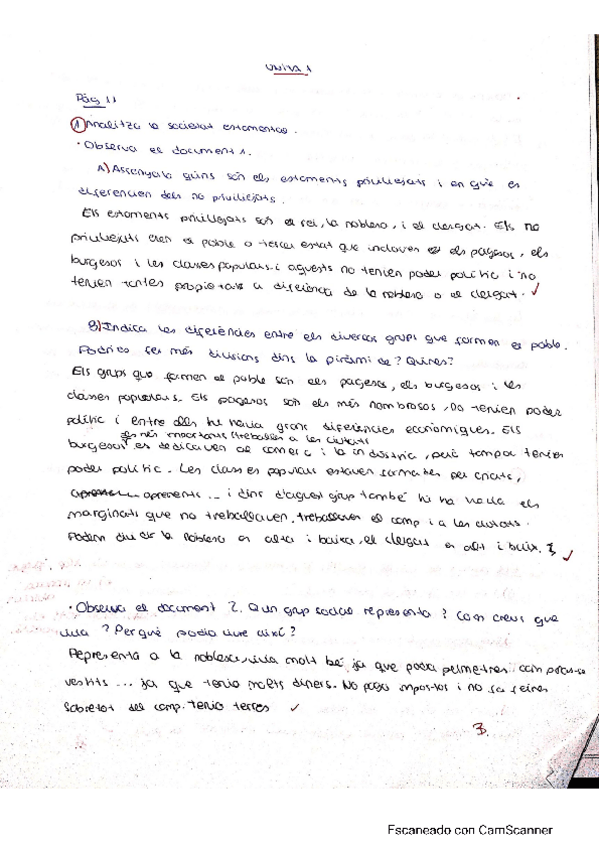 UNITAT 1
Pàg 11
1 Analitza la societat estamental.
· Observa el document 1.
A) Assenyala quins són els estaments privilegiats i en què es
diferencien dels no privilegiats.
Els estaments privilegiats són el rei, la noblesa, i el clergat. Els no
privilegiats eren el poble o tercer estat que incloïen els pagesos, els
burgesos i les classes populars i aquests no tenien poder polític i no
tenien tantes propietats a diferència de la noblesa o el clergat.
B) Indica les diferències entre els diversos grups que formen el poble.
Podries fer més divisions dins la piràmide? Quines?
Els grups que formen el poble són els pagesos, els burgesos i les
classes populars. Els pagesos són els més nombrosos, no tenien poder
polític i entre ells hi havia grans diferències econòmiques. Els
els més importants (treballen a les ciutats
burgesos es dedicaven al comerç i la indústria, però tampoc tenien
poder polític. Les classes populars estaven formades per criats,
aprenents ... i dins d'aquest grup també hi havia els
marginats que no treballaven, treballaven el camp i a les ciutats.
Podem dividir la noblesa en alta i baixa, el clergat en alt i baix.
· Observa el document 2. Quin grup social representa? Com creus que
vivia? Per què podia viure així?
Representa a la noblesa, vivia molt bé, ja que podia permetre's
vestits ... ja que tenia molts diners. No paga impostos i no fa feines
sobretot del camp. Tenia terres
3
Escaneado con CamScanner